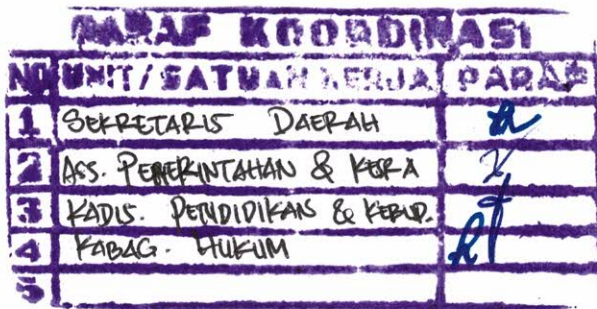 PARAF KOORDINASI
NO UNIT/SATUAN KERJA PARAF
1 SEKRETARIS DAERAH
2 ASS. PEMERINTAHAN & KESRA
3 KADIS. PENDIDIKAN & KEBUD.
4 KABAG. HUKUM
5